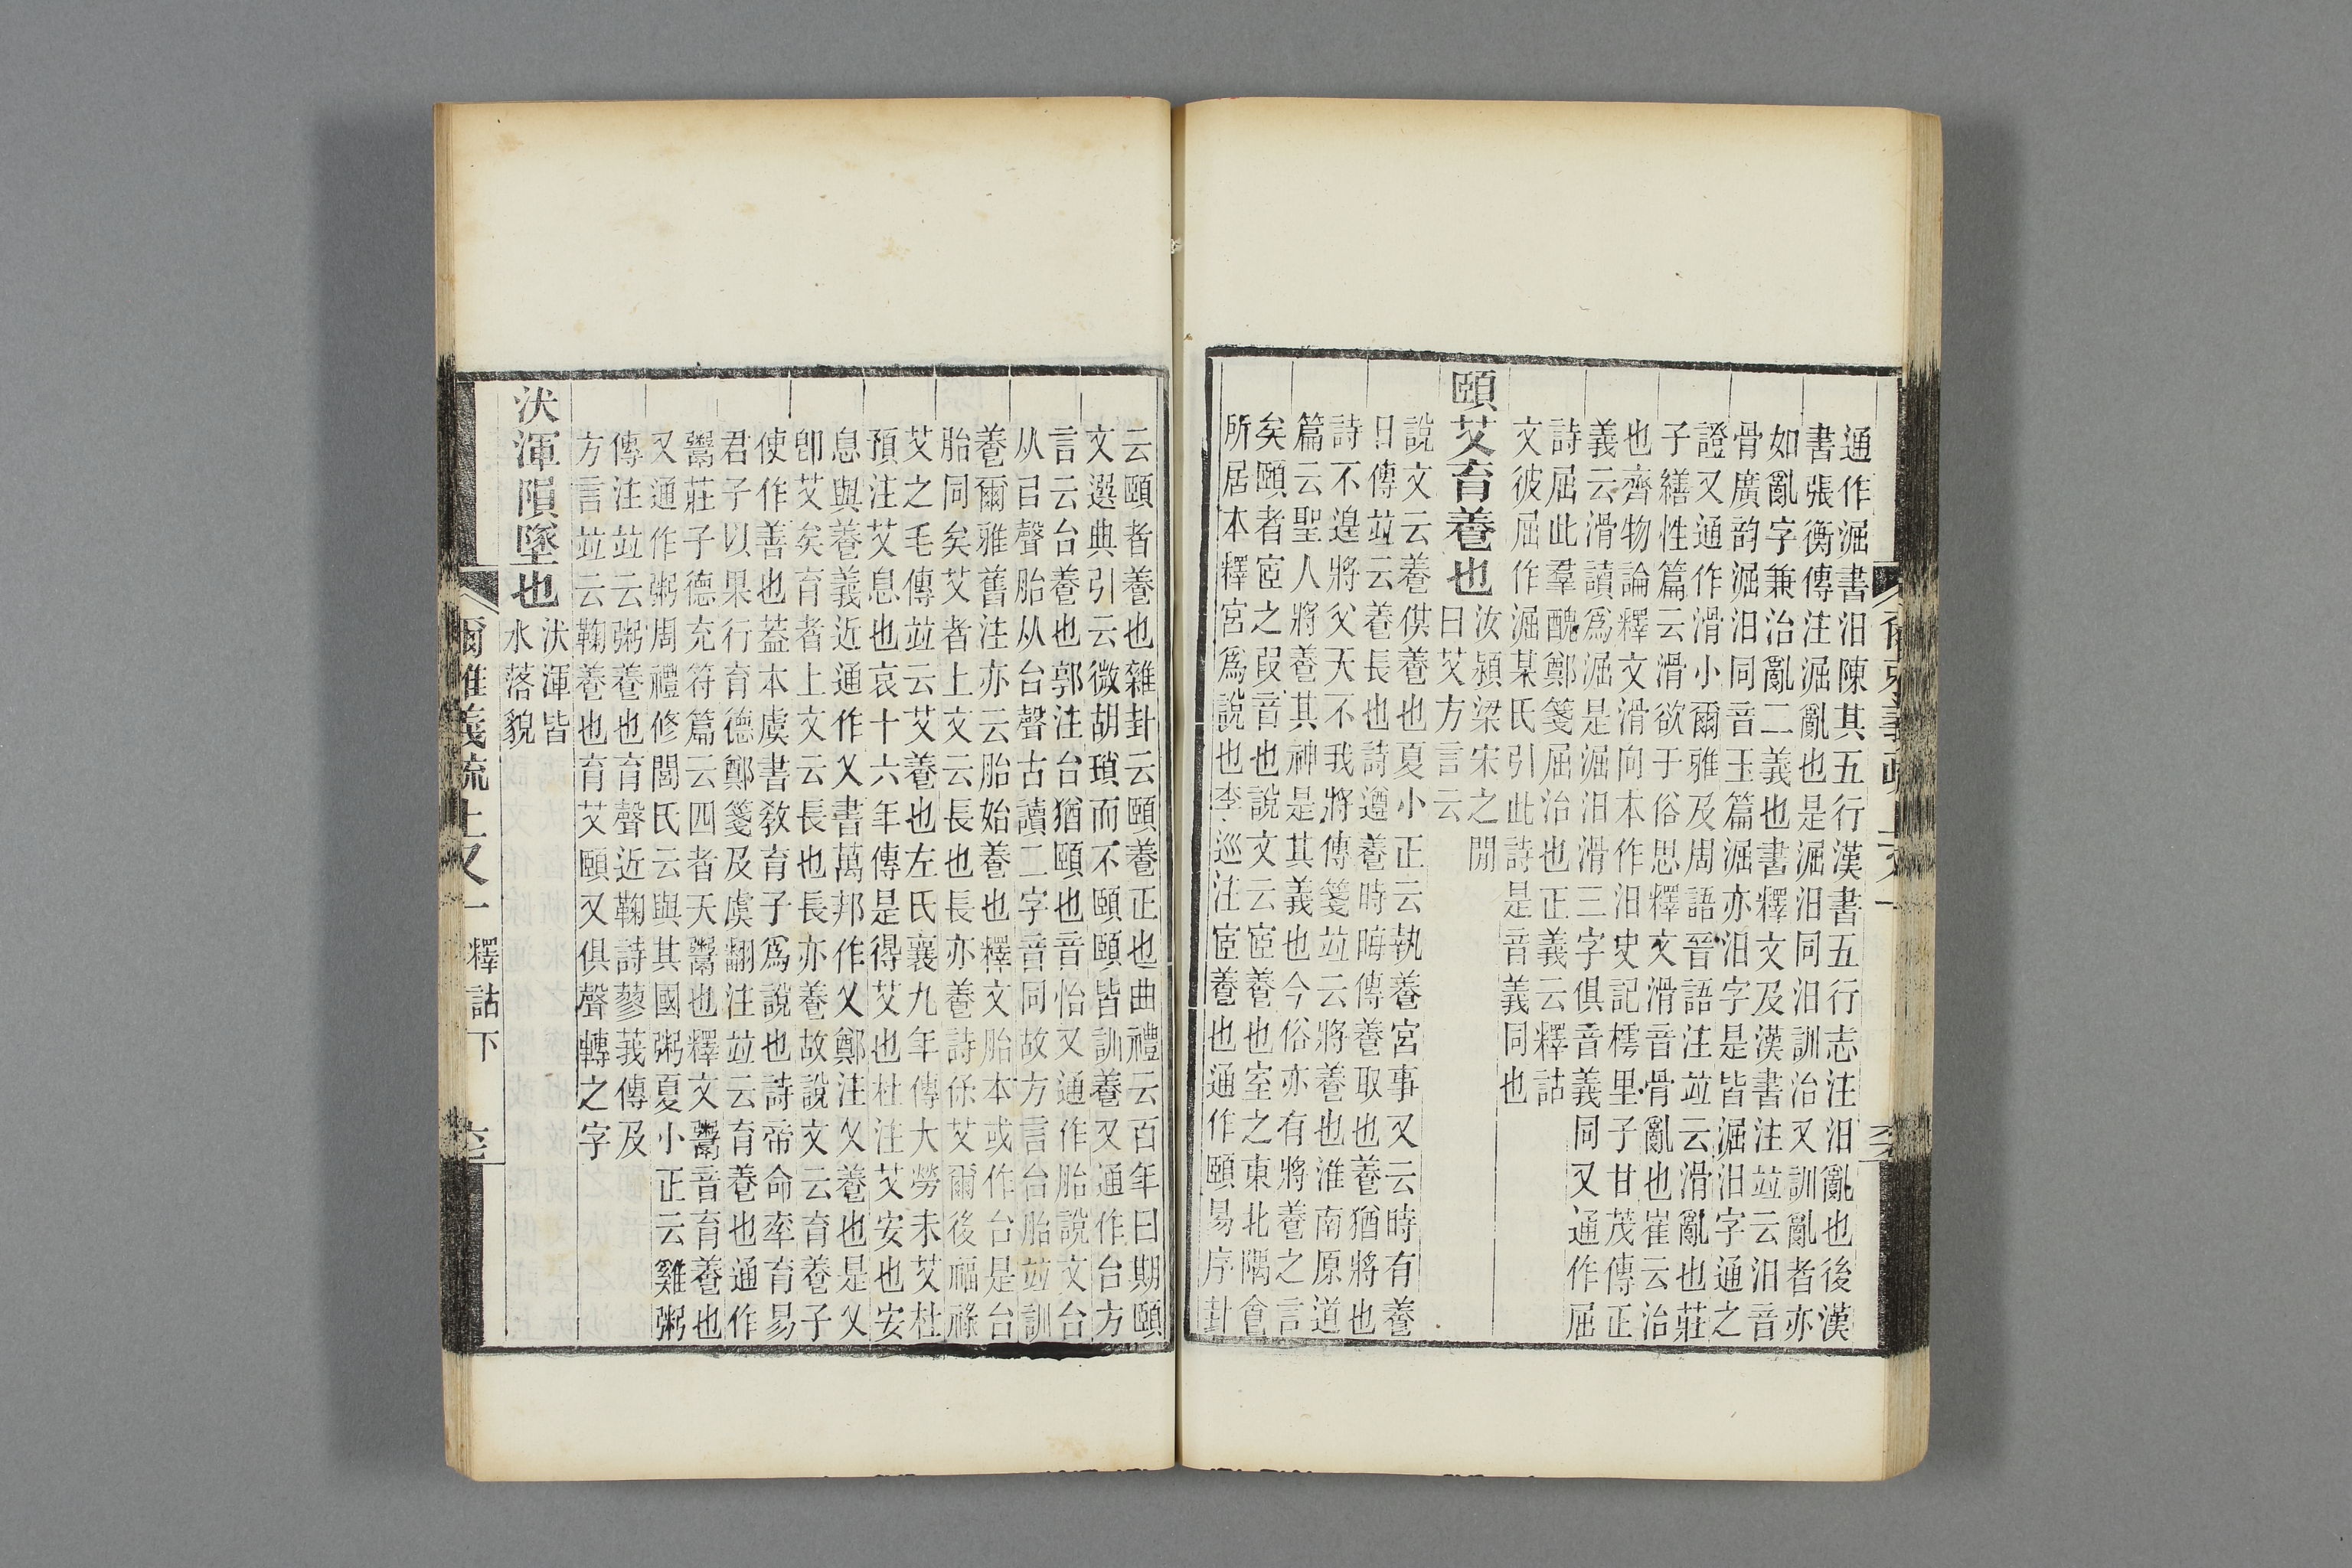 通作淈書汩陳其五行漢書五行志注汩亂也後漢
書張衡傳注淈亂也是淈汩同汩訓治又訓亂者亦
如亂字兼治亂二義也書釋文及漢書注竝云汩音
骨廣韵淈汩同音玉篇淈亦汩字是皆淈汩字通之
證又通作滑小爾雅及周語晉語注竝云滑亂也莊
子繕性篇云滑欲于俗思釋文滑音骨亂也崔云治
也齊物論釋文滑向本作汩史記樗里子甘茂傳正
義云滑讀爲淈是淈汩滑三字俱音義同又通作屈
詩屈此羣醜鄭箋屈治也正義云釋詁
文彼屈作淈某氏引此詩是音義同也
頤艾育養也汝潁梁宋之閒
曰艾方言云
說文云養供養也夏小正云執養宮事又云時有養
日傳竝云養長也詩遵養時晦傳養取也養猶將也
詩不遑將父天不我將傳箋竝云將養也淮南原道
篇云聖人將養其神是其義也今俗亦有將養之言
矣頤者宧之叚音也說文云宧養也室之東北隅會
所居本釋宮爲說也李巡注宧養也通作頤易序卦
云頤者養也雜卦云頤養正也曲禮云百年曰期頤
文選典引云微胡瑣而不頤頤皆訓養又通作台方
言云台養也郭注台猶頤也音怡又通作胎說文台
从㠯聲胎从台聲古讀二字音同故方言台胎竝訓
養爾雅舊注亦云胎始養也釋文胎本或作台是台
胎同矣艾者上文云長也長亦養詩保艾爾後福祿
艾之毛傳竝云艾養也左氏襄九年傳大勞未艾杜
預注艾息也哀十六年傳是得艾也杜注艾安也安
息與養義近通作乂書萬邦作乂鄭注乂養也是乂
卽艾矣育者上文云長也長亦養故說文云育養子
使作善也葢本虞書敎育子爲說也詩帝命率育易
君子以果行育德鄭箋及虞翻注竝云育養也通作
鬻莊子德充符篇云四者天鬻也釋文鬻音育養也
又通作粥周禮修閭氏云與其國粥夏小正云雞粥
傳注竝云粥養也育聲近鞠詩蓼莪傳及
方言竝云鞠養也育艾頤又俱聲轉之字
汱渾隕墜也汱渾皆
水落貌
爾雅義疏上又一 釋詁下